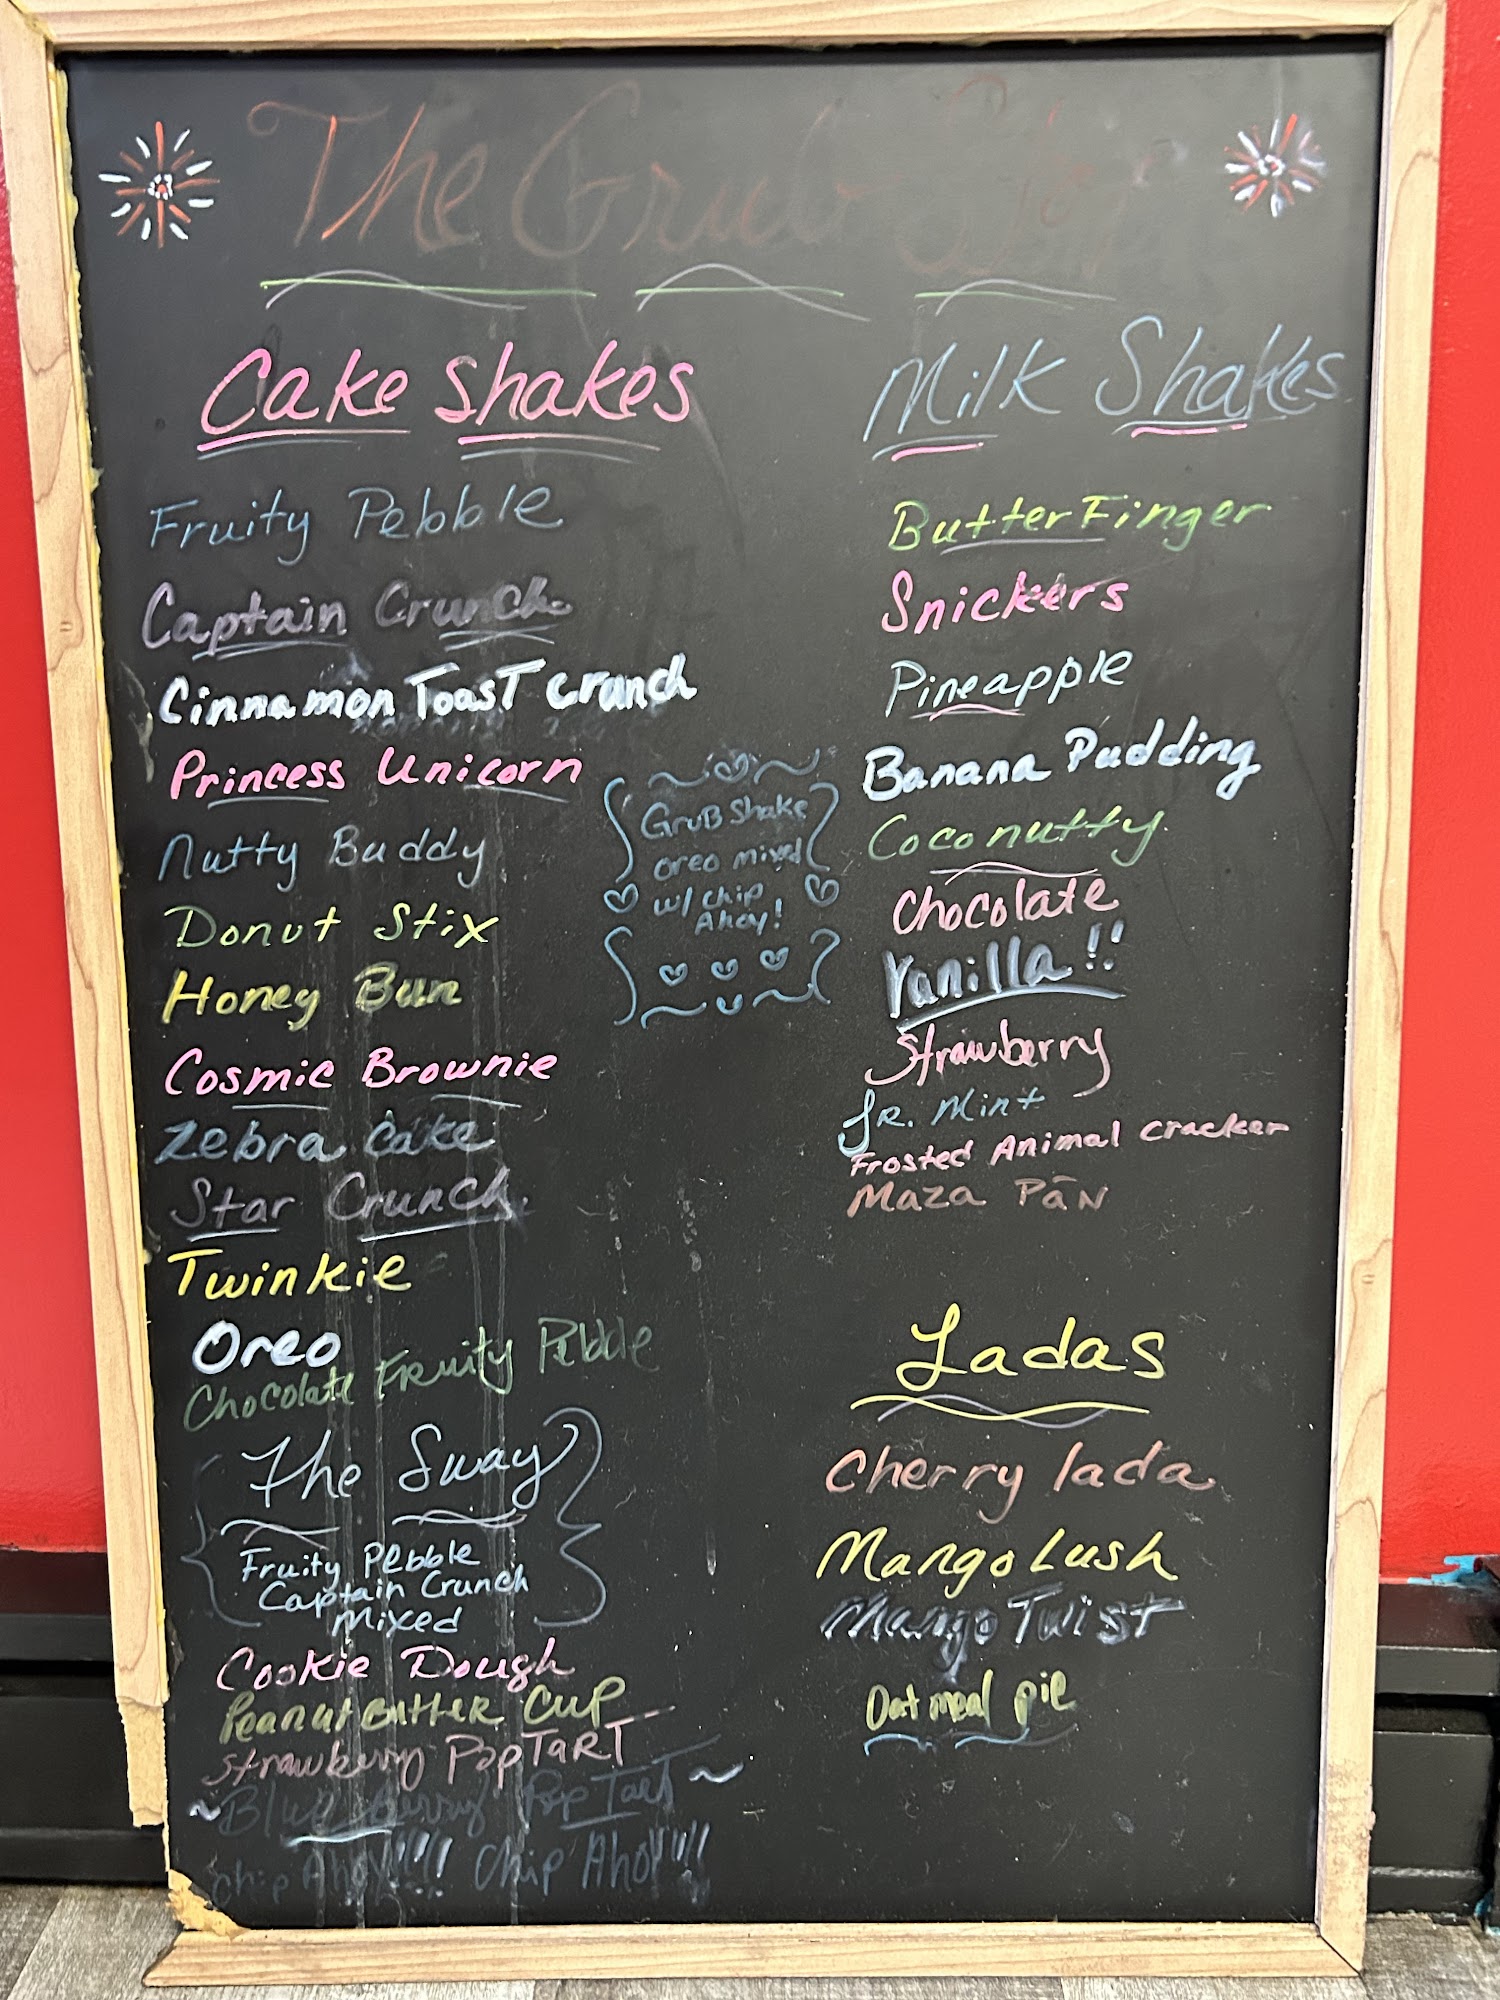 The Grub
Cake Shakes
Fruity Pebble
Captain Crunch
Cinnamon Toast Crunch
Princess Unicorn
Nutty Buddy
Donut Stix
Honey Bun
Cosmic Brownie
Zebra Cake
Star Crunch
Twinkie
Oreo
Chocolate Fruity Pebble
The Sway
Fruity Pebble
Captain Crunch
Mixed
Cookie Dough
Peanut Butter Cup
Strawberry PopTART
~Blue berry Pop Tart~
Chip Ahoy!!!! Chip Ahoy!!!!
GruB Shake
oreo mixed
w/ chip
Ahoy!
Milk Shakes
ButterFinger
Snickers
Pineapple
Banana Pudding
Coconutty
Chocolate
Vanilla!!
Strawberry
Jr. Mint
Frosted Animal Cracker
Maza Pān
Ladas
Cherry lada
Mango Lush
Mango Twist
Oatmeal pie